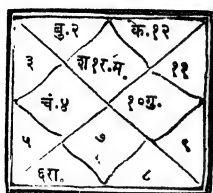 बु.२ के.१२
३ श१र.मं. ११
चं.४ १०गु.
५ ७ ९
६रा. ८